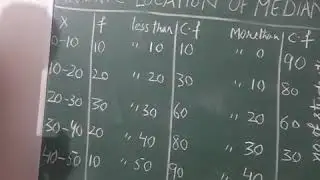 LOCATION OF MEDIAN
X f less than C.f More than C.f
0-10 10 " 10 10 " 0 90
10-20 20 " 20 30 " 10 80
20-30 30 " 30 60 " 20 60
30-40 20 " 40 80 " 30 30
40-50 10 " 50 90 " 40